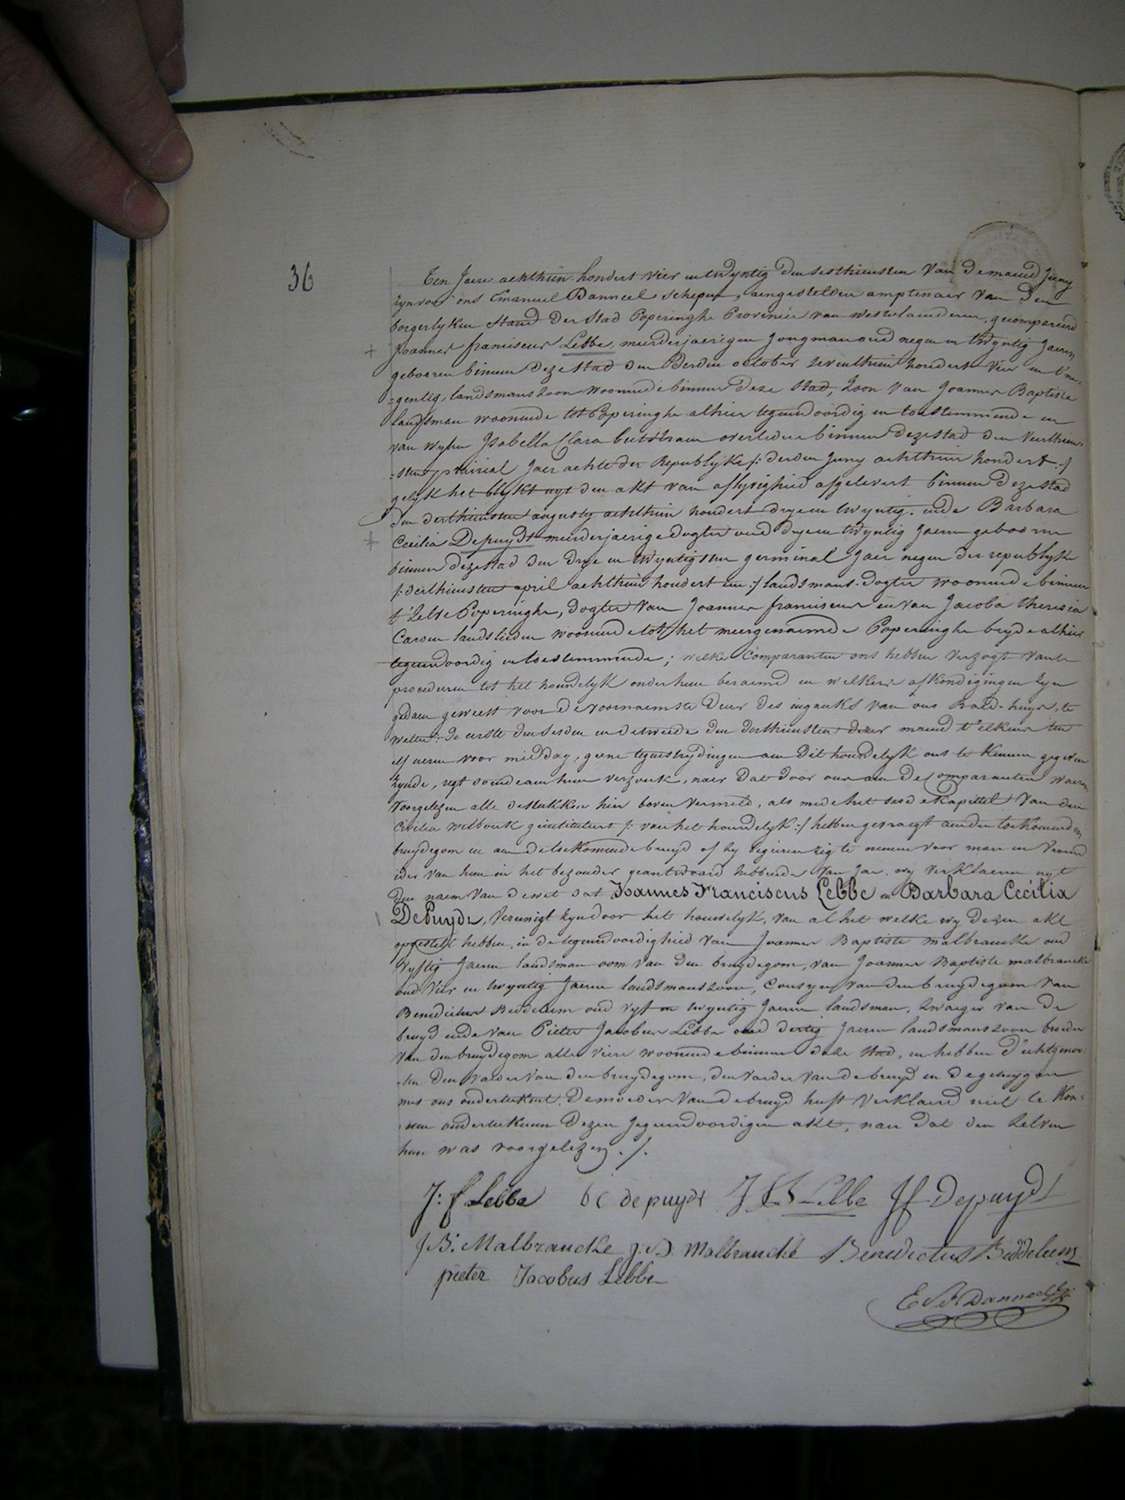 36
Ten Jaere achthien hondert vier en twyntig den sesthiensten van de maend Juny
zyn voor ons Emanuel Danneel schepen, aengestelden amptenaer van den
borgerlyken Stand der Stad Poperinghe Provencie van westvlaenderen, gecompareerd
Joannes franciscus Lebbe, meerderjaerigen Jongman oud negen en twyntig Jaeren
geboren binnen deze stad den derden october zeventhien hondert vier en t'ne-
gentig, landsmans zoon woonende binnen deze stad, zoon van Joannes Baptiste
landsman woonende tot Poperinghe alhier tegenwoordig en toestemmende en
van wylen Isabella Clara overleden binnen deze stad den veerthien-
sten prairial Jaer achte der Republyke /: derden Juny achthien hondert :/
gelyk het blykt uyt den akt van aflyvigheid afgelevert binnen deze stad
den derthiensten augusty achthien hondert dryen twyntig. ende Barbara
Cecilia Depuydt meerderjaerige dogter oud dryen twyntig Jaeren geboren
binnen deze stad den drye en twyntigsten germinal Jaer negen der republyke
/: derthiensten april achthien hondert een :/ landsmans dogter woonende binnen
t' zelve Poperinghe, dogter van Joannes franciscus en van Jacoba theresia
Caroen landslieden woonende tot het meergenaemde Poperinghe beyde alhier
tegenwoordig en toestemmende; welke Comparanten ons hebben verzogt van te
procederen tot het houwelyk onder hun beraemd en welkers afkondigingen zyn
gedaen geweest voor de voornaemste deur des inganks van ons Raed-huys, te
weten: de eerste den sesden en de tweede den derthiensten dezer maend t'elkens ten
elf ueren voor middag, geene tegenstrydingen aen dit houwelyk ons te kennen gegeven
zynde, regt doende aen hun verzoek, naer dat door ons aen de Comparanten waeren
voorgelezen alle de stukken hier boven vermeld, als mede het sesde Kapittel van den
Civilen wetboek geintituleert /: van het houwelyk :/ hebben gevraegt aen den toekomenden
bruydegom en aen de toekomende bruyd of hy begeeren zig te nemen voor man en vrouw
ider van hun in het bezonder geantwoord hebbende van Jae, wy verklaeren uyt
den naem van de wet dat Joannes Franciscus Lebbe en Barbara Cecilia
DePuydt, Vereenigt zyn door het houwelyk, van al het welke wy dezen akt
opgestelt hebben, in de tegenwoordigheid van Joannes Baptiste malbrancke oud
vyftig Jaeren landsman oom van den bruydegom, van Joannes Baptiste malbrancke
oud vier en twyntig Jaeren landsmans zoon, Cousyn van den bruydegom van
Benedictus Beddeleem oud vyf en twyntig Jaeren landsman, zwaeger van de
bruyd ende van Pieter Jacobus Lebbe oud dertig Jaeren landsmans zoon broeder
van den bruydegom alle viere woonende binnen deze stad, en hebben d'echtgenoo-
ten den vader van den bruydegom, den vader van de bruyd en de getuygen
met ons onderteekent. De moeder van de bruyd heeft verklaerd niet te Kon-
nen onderteekenen dezen tegenwoordigen akt, naer dat den zelven
hun was voorgelezen ./.
J: f Lebbe bc depuydt J B Lebbe JF Depuydt
J B: Malbrancke J. B Malbrancke Benedictus Beddeleem
pieter Jacobus Lebbe
E Danneel